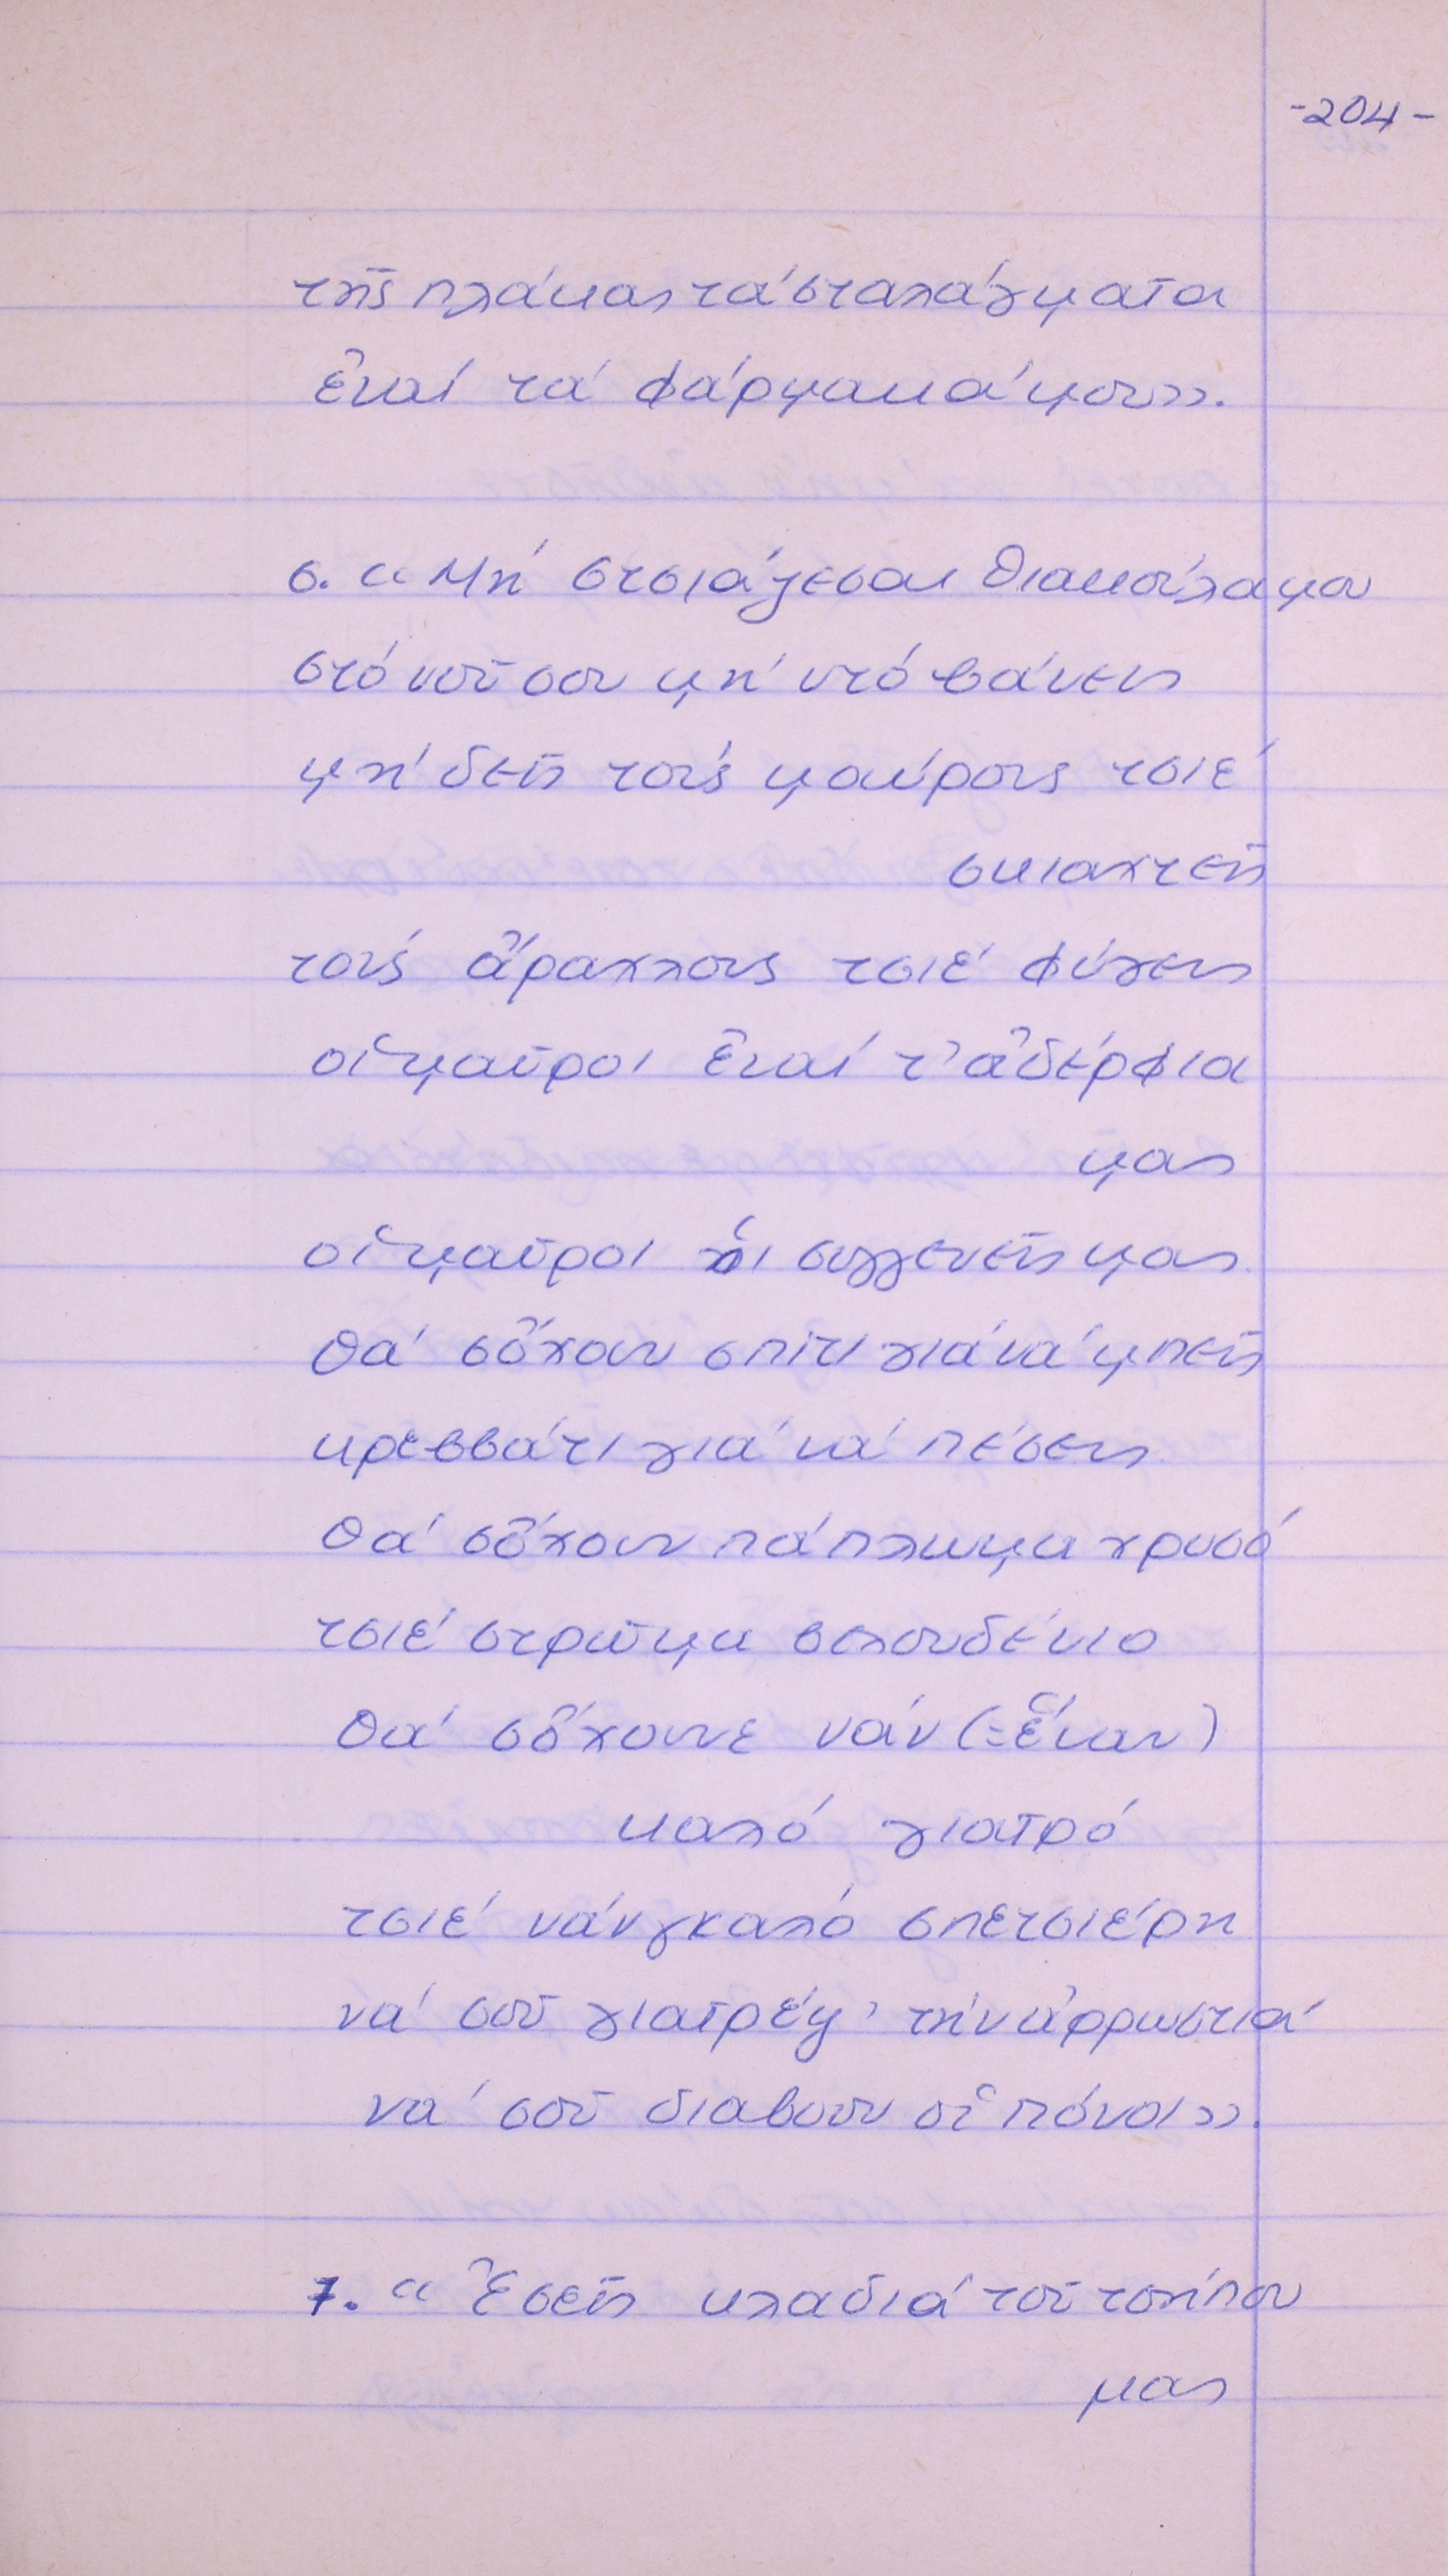 -204-
τῆς πλάκας τά σταλάγματα
ἐναί τά φάρμακά μου».
6. «Μή στσιάζεσαι Θιακούλα μου
στό νοῦ σου μή ντό βάνεις
μή δεῖς τούς μαύρους τσιέ
σκιαχτεῖς
τούς ἄραχλους τσιέ φύγεις
οἱ μαῦροι ἐναί τ' ἀδέρφια
μας
οἱ μαῦροι οἱ συγγενεῖς μας
θά σὄχουν σπίτι γιά νά μπεῖς
κρεββάτι γιά νά πέσεις
θά σὄχουν πάπλωμα χρυσό
τσιέ στρῶμα βελουδένιο
θά σὄχουνε νάν (=ἕναν)
καλό γιατρό
τσιέ νάν γκαλό σπετσιέρη
νά σοῦ γιατρέψ' τήν ἀρρωστιά
νά σοῦ διαβουν οἱ πόνοι».
7. «Ἐσεῖς κλαδιά τοῦ τσήπου
μας